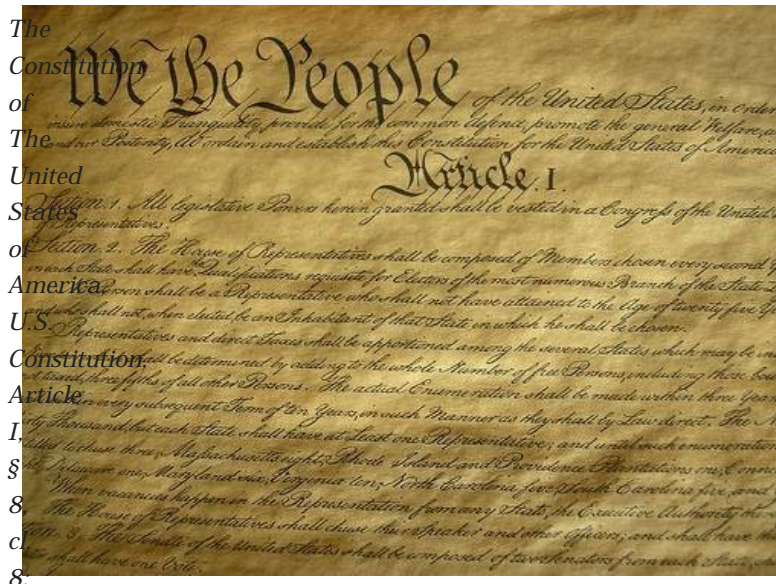 The
Constitution
of
The
United
States
of
America,
U.S.
Constitution,
Article
I,
§
8,
cl.
8:
We the People of the United States, in Order
insure domestic Tranquility, provide for the common defence, promote the general Welfare, a
and our Posterity, do ordain and establish this Constitution for the United States of America
Article. I.
Section. 1. All legislative Powers herein granted shall be vested in a Congress of the United
of Representatives.
Section. 2. The House of Representatives shall be composed of Members chosen every second
in each State shall have Qualifications requisite for Electors of the most numerous Branch of the State
Person shall be a Representative who shall not have attained to the Age of twenty five
and who shall not, when elected, be an Inhabitant of that State in which he shall be chosen.
Representatives and direct Taxes shall be apportioned among the several States which may be
be determined by adding to the whole Number of free Persons, including those
not taxed, three fifths of all other Persons. The actual Enumeration shall be made within three Years
every subsequent Term of ten Years, in such Manner as they shall by Law direct. The
Thousand, but each State shall have at Least one Representative; and until such enumeration
to chuse three, Massachusetts eight, Rhode Island and Providence Plantations one,
Delaware one, Maryland six, Virginia ten, North Carolina five, South Carolina five, and
When vacancies happen in the Representation from any State, the Executive Authority
The House of Representatives shall chuse their Speaker and other Officers; and shall have
3. The Senate of the United States shall be composed of two Senators from each State,
shall have one Vote.